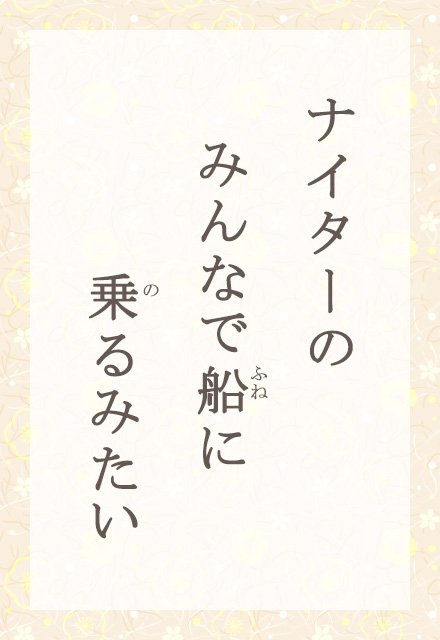 ナイターの
みんなで船に
ふね
乗るみたい
の